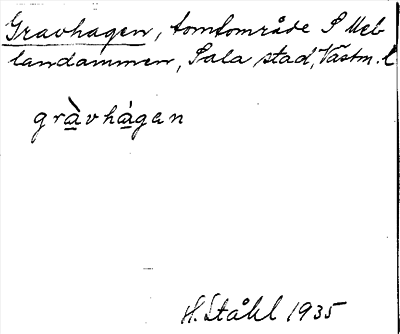 Gravhagen, tomtområde S Meb
landammen, Sala stad, Västm. l.
gràvhágen
H. Ståhl 1935